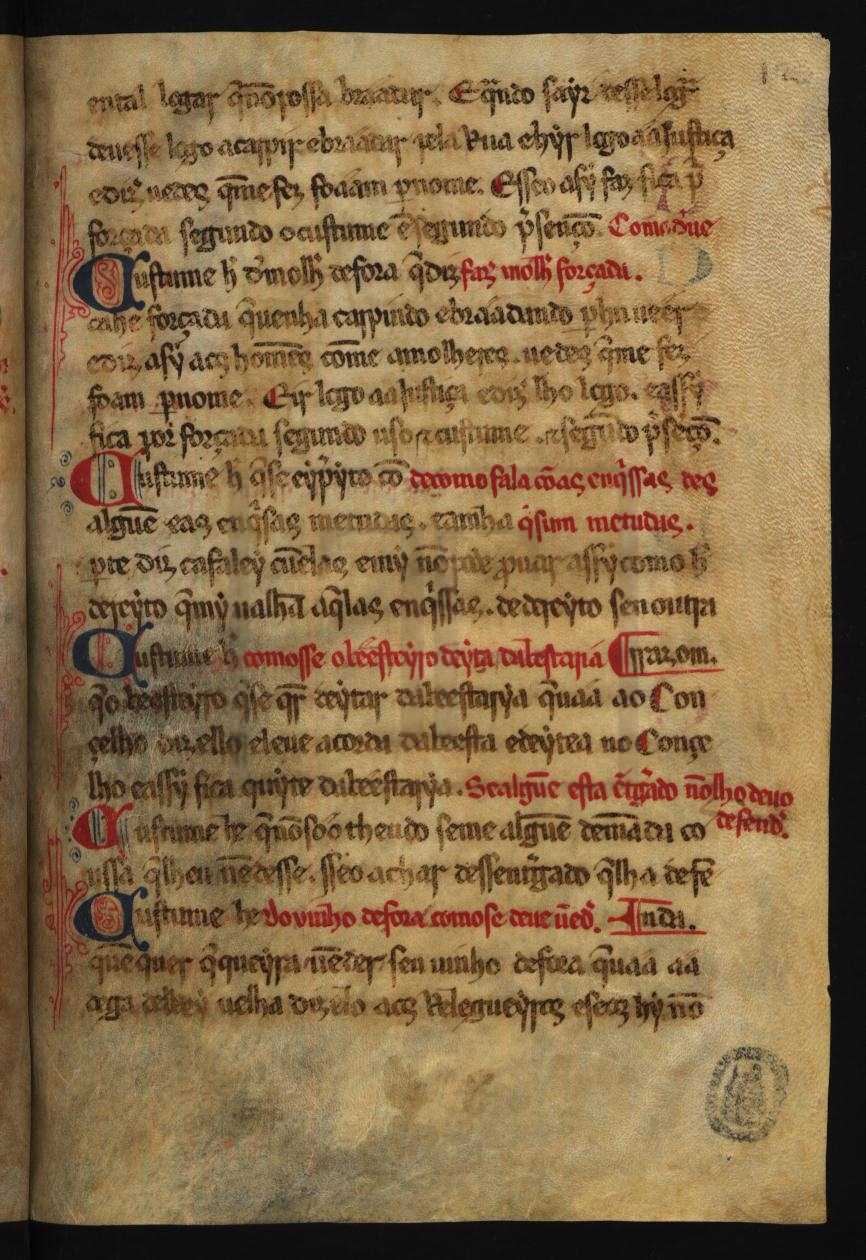 en tal logar q̃ nõ possa braadar. E q̃ndo sayr desse logr̃
deuesse logo a carpir e braadar pela Rua e hyr logo aa Justiça
e diz̃ uedes q̃ me fez foaam p nome. E sseo asy faz fica p̃
forçada segundo o custume e segundo p̃senço. Como deue
Custume h̃ de molh̃ de fora q̃ diz faz̃ molh̃ forçada.
ca he forçada q̃ uenha carpindo e braadando p hu ueer
e diz, asy aos homẽes come a molheres. uedes q̃ me fez
foam p nome. E ir logo aa justiça e diz̃ lho logo. e assy
fica por forçada segundo uso e custume. e segũdo p̃sẽço.
Custume h̃ q̃ se eyp̃yto cõ de como fala cõ as enq̃ssas des
alguẽ e as enq̃sas metudas. q̃ sum metudas.
pte diz ca faley cũ elas e my nõ pode prouar assy como h̃
dereyto q̃ my ualhã aq̃las enq̃ssas. de dereyto sen outra
Custume h̃ como sse o beesteyro deyta da bestaria rrazom.
q̃ o beesteyro q̃ se q̃r deytar da beestarya q̃ uaa ao Con
celho diz̃ ello e leue a corda da beesta e deytea no Conçe
lho e assy fica quite da beestarya. Se alguẽ esta nõ lho deuo
defend̃.
Custume he q̃ nõ soo theudo se me alguẽ demãda co
ussa q̃ lh eu uẽdesse. sseo achar dessenᵗgado q̃ lha defẽ
Custume he do vinho de fora como se deue uẽd̃. Inda.
quẽ quer q̃ queyra uẽder seu uinho de fora q̃ uaa aa
dega del Rey uelha diz̃elo aos Relegueyros e se os hy nõ